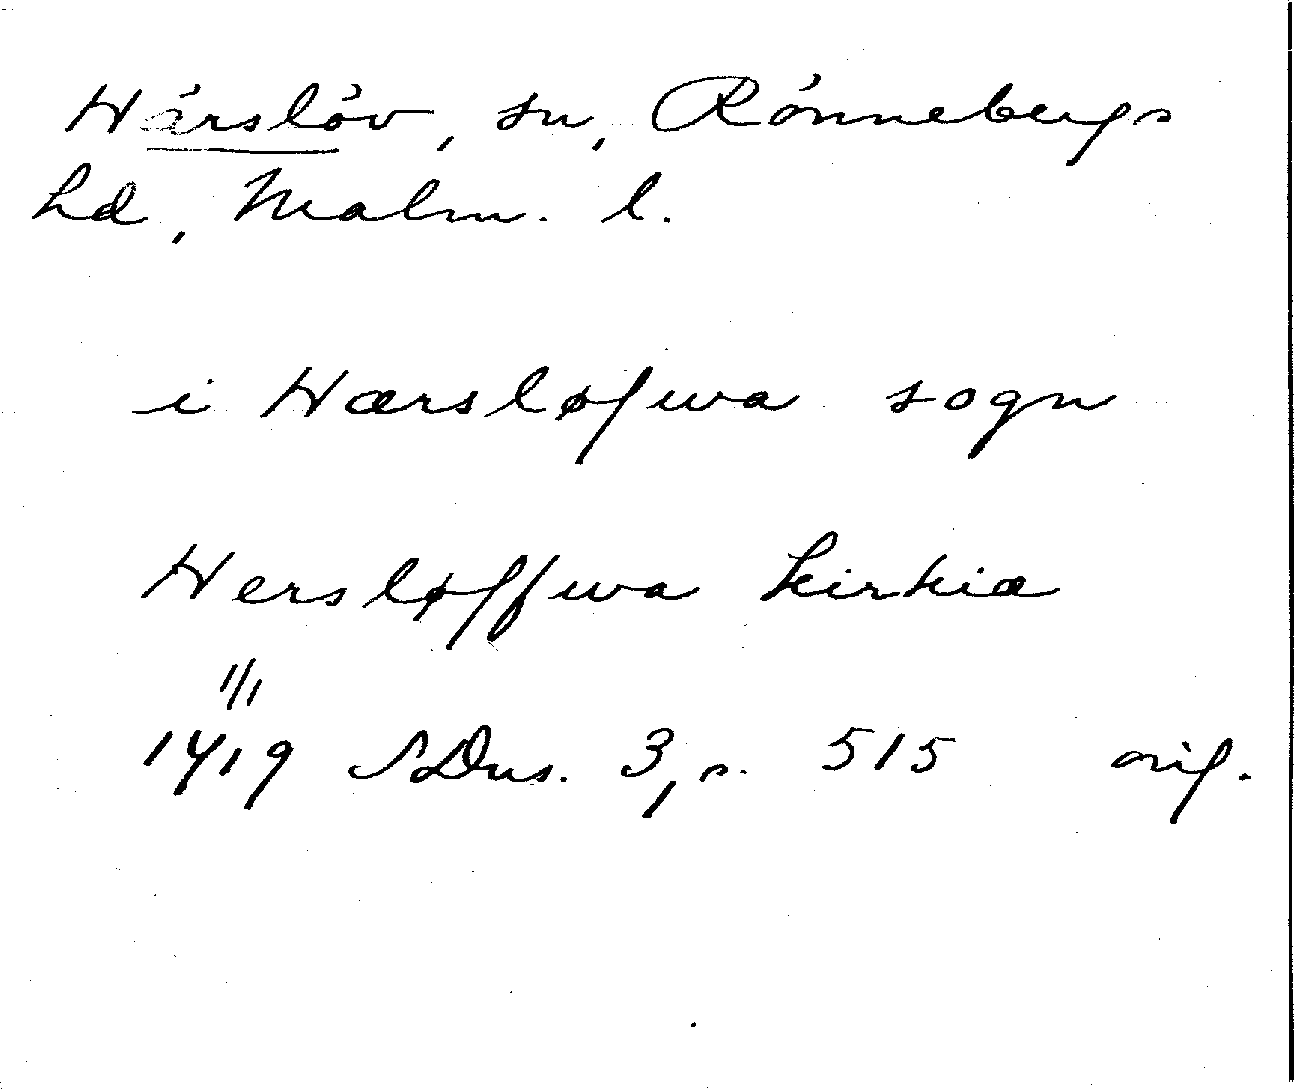 Härslöv, sn, Rönnebergs
hd, Malm. l.
i Hærsløfwa sogn
Hersløffwa kirkiæ
1/1
1419 SDns. 3, s. 515 orig.